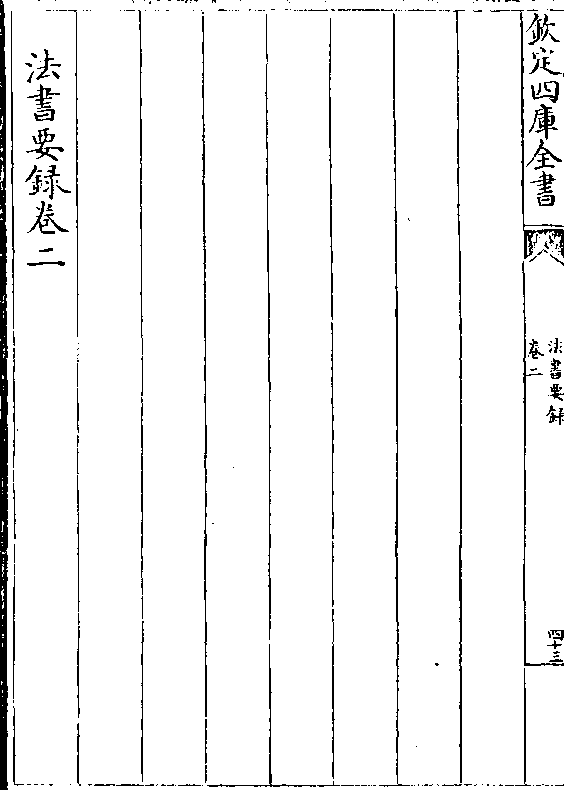 欽定四庫全書
法書要録
卷二
四十三
法書要録卷二